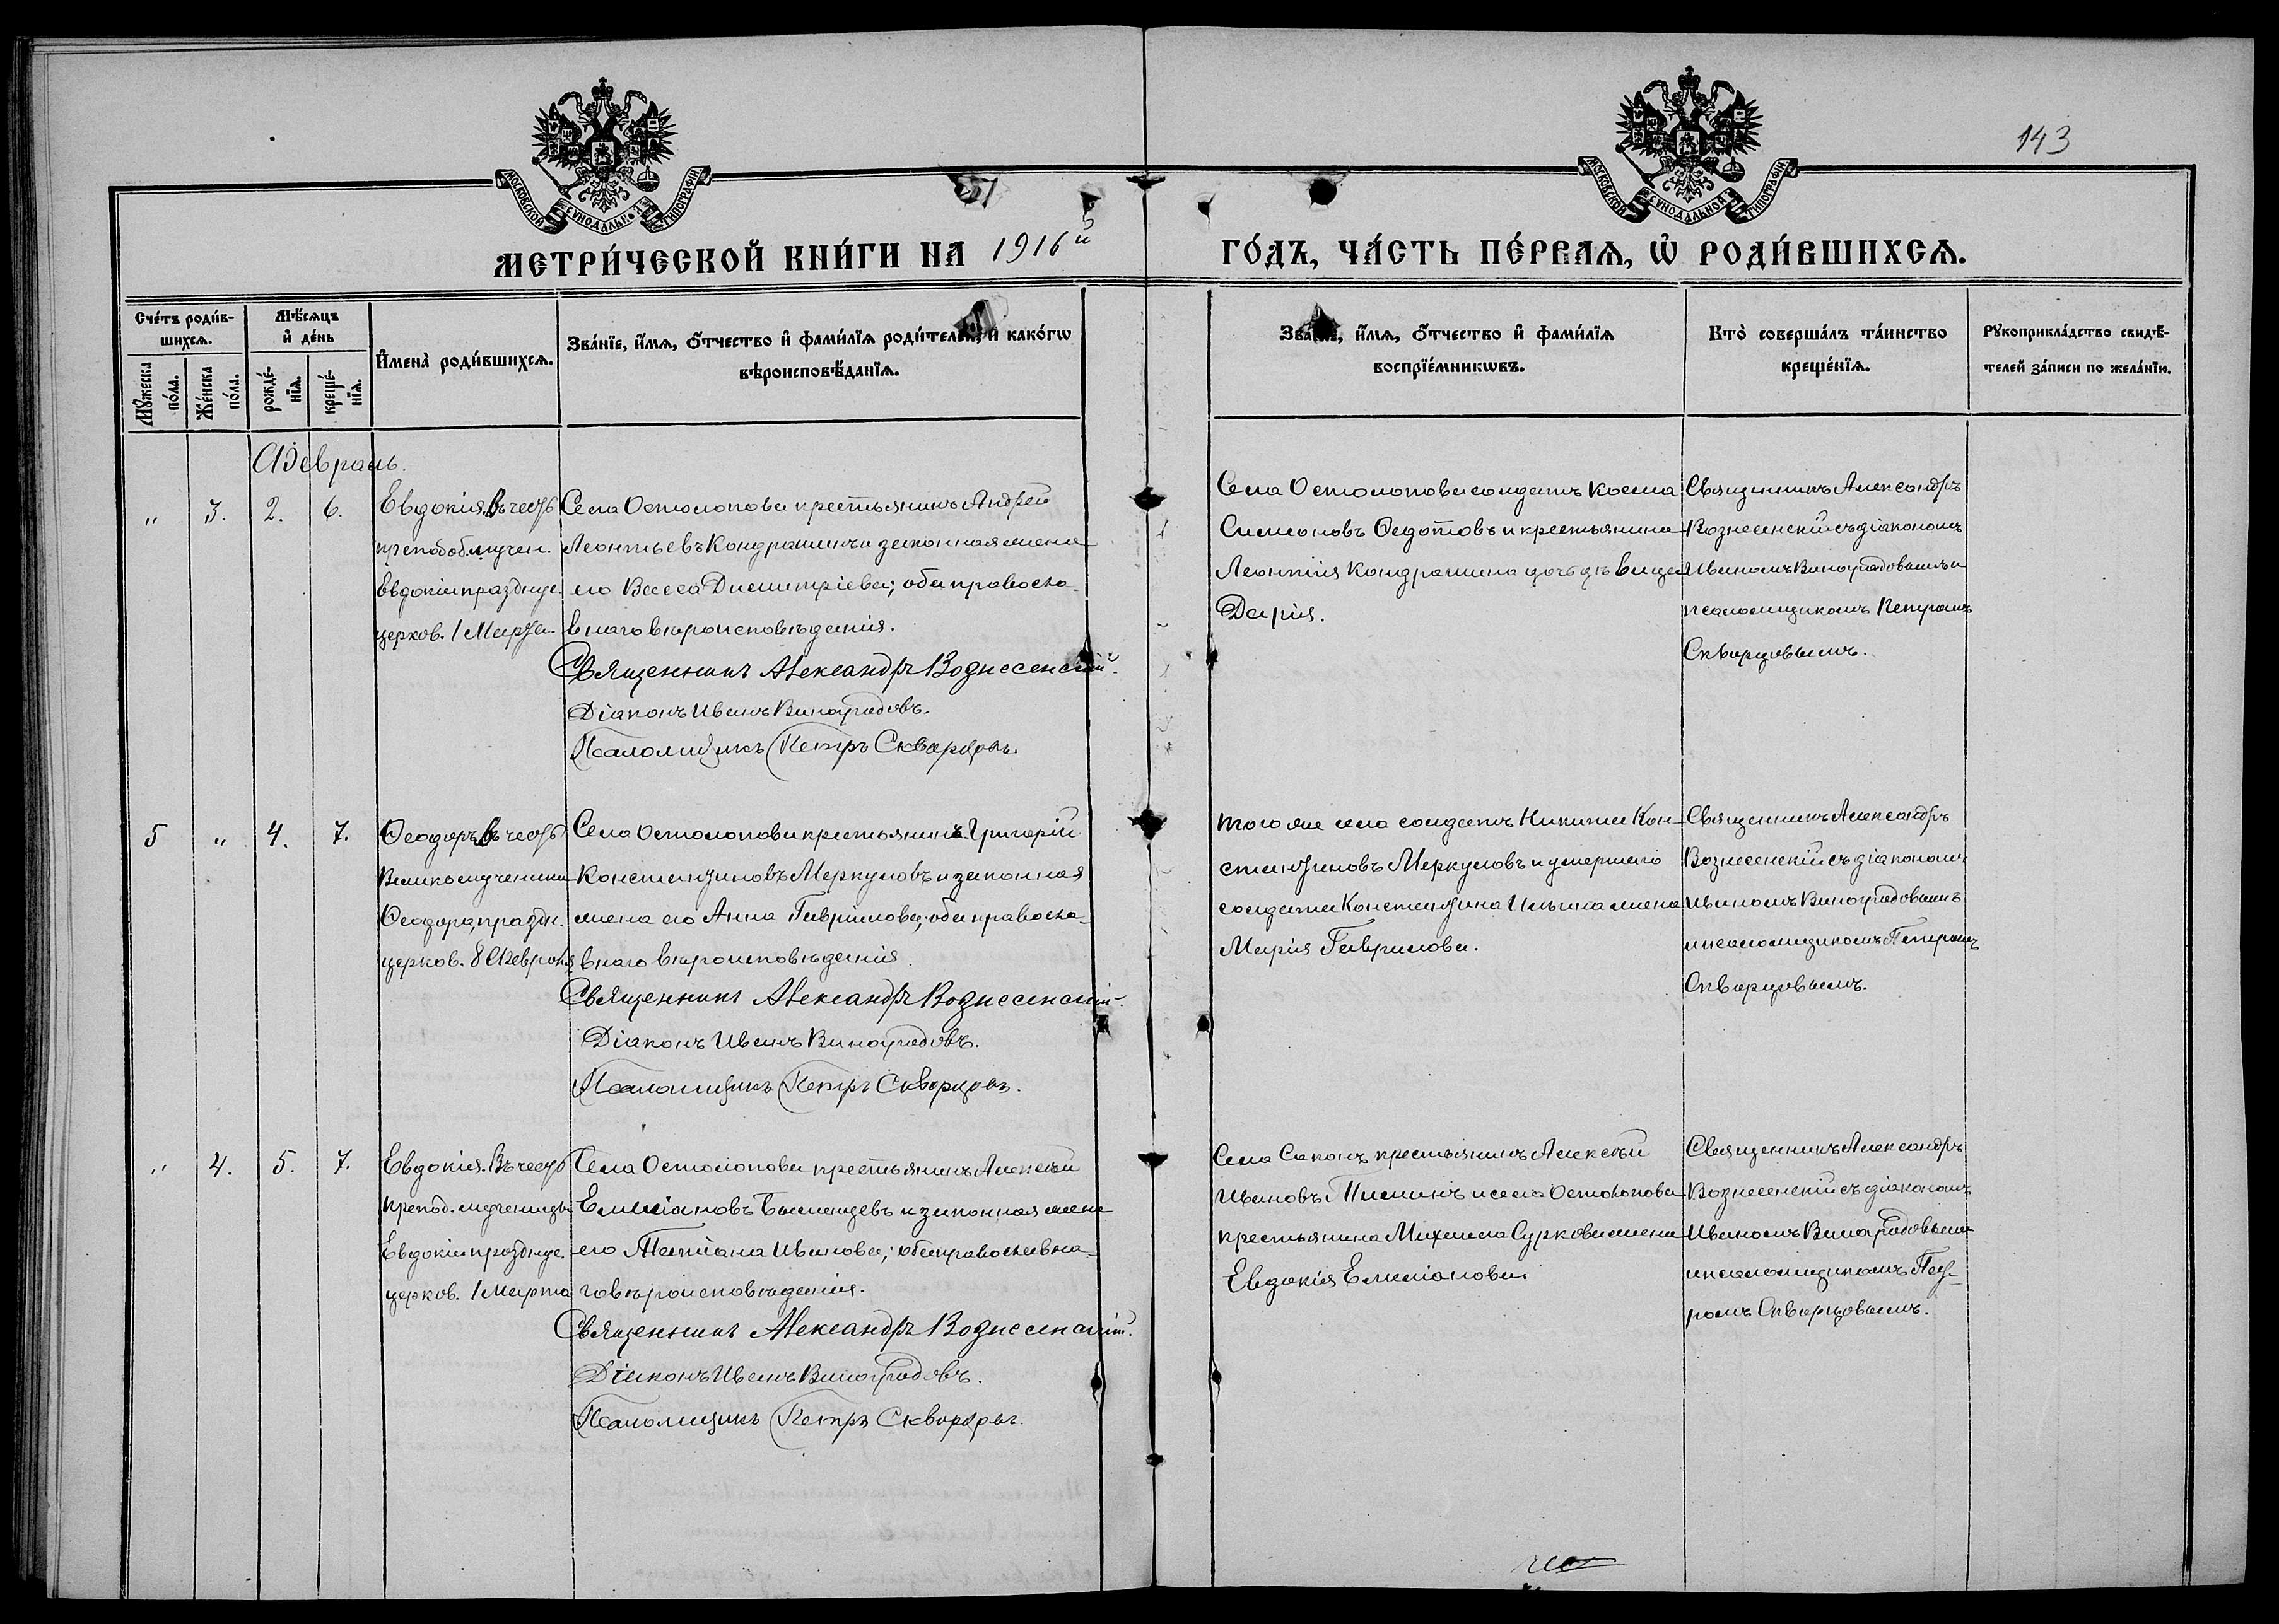 143
МОСКОВСКОЙ СѴНОДАЛЬНОЙ ТИПОГРАФІИ
МОСКОВСКОЙ СѴНОДАЛЬНОЙ ТИПОГРАФІИ
МЕТРИ́ЧЕСКОЙ КНИ́ГИ НА 1916й ГО́ДЪ, ЧА́СТЬ ПЕ́РВАѦ, Ѡ҆ РОДИ́ВШИХСѦ.
Сче́тъ роди́в-
шихсѧ.
Мꙋ́жеска по́ла.
Же́нска по́ла.
Мѣ́сѧцъ
и҆ де́нь
рожде́-
нїѧ.
креще́-
нїѧ.
И҆мена̀ роди́вшихсѧ.
Зва́нїе, и҆́мѧ, ѻ҆́тчество и҆ фами́лїѧ роди́телей, и҆ како́гѡ
вѣроисповѣ́данїѧ.
Зва́нїе, и҆́мѧ, ѻ҆́тчество и҆ фами́лїѧ
воспрїе́мникѡвъ.
Кто̀ соверша́лъ та́инство
креще́нїѧ.
Рꙋкоприкла́дство свидѣ́-
телей за́писи по жела́нїю.
Февраль.
" 3. 2. 6.
Евдокія. Въ честь
преподоб. мучен.
Евдокіи празднуе.
церков. 1 Марта.
Села Остолопова крестьянинъ Андрей
Леонтьевъ Кондрашинъ и законная жена
его Васса Димитріева; оба правосла-
внаго вѣроисповѣданія.
Священникъ Александръ Вознесенскій.
Діаконъ Иванъ Виноградовъ.
Псаломщикъ Петръ Скворцовъ.
Села Остолопова солдатъ Косма
Симоновъ Ѳедотовъ и крестьянина
Леонтія Кондрашина дочь дѣвица
Дарія.
Священникъ Александръ
Вознесенскій съ діакономъ
Иваномъ Виноградовымъ и
псаломщикомъ Петромъ
Скворцовымъ.
5 " 4. 7.
Ѳеодоръ. Въ честь
Великомученика
Ѳеодора, праздн.
церков. 8 Февраля
Села Остолопова крестьянинъ Григорій
Константиновъ Меркуловъ и законная
жена его Анна Гаврилова; оба правосла-
внаго вѣроисповѣданія.
Священникъ Александръ Вознесенскій.
Діаконъ Иванъ Виноградовъ.
Псаломщикъ Петръ Скворцовъ.
Того же села солдатъ Никита Кон-
стантиновъ Меркуловъ и умершаго
солдата Константина Ильина жена
Марія Гаврилова.
Священникъ Александръ
Вознесенскій съ діакономъ
Иваномъ Виноградовымъ
и псаломщикомъ Петромъ
Скворцовымъ.
" 4. 5. 7.
Евдокія. Въ честь
препод. мученицы
Евдокіи празднуе.
церков. 1 Марта
Села Остолопова крестьянинъ Алексѣй
Емиліановъ и законная жена
его Татіана Иванова; оба православна-
го вѣроисповѣданія.
Священникъ Александръ Вознесенскій.
Діаконъ Иванъ Виноградовъ.
Псаломщикъ Петръ Скворцовъ.
Села Саконъ крестьянинъ Алексѣй
Ивановъ и села Остолопова
крестьянина Михаила Суркова жена
Евдокія Емиліанова.
Священникъ Александръ
Вознесенскій съ діакономъ
Иваномъ Виноградовымъ
и псаломщикомъ Пет-
ромъ Скворцовымъ.